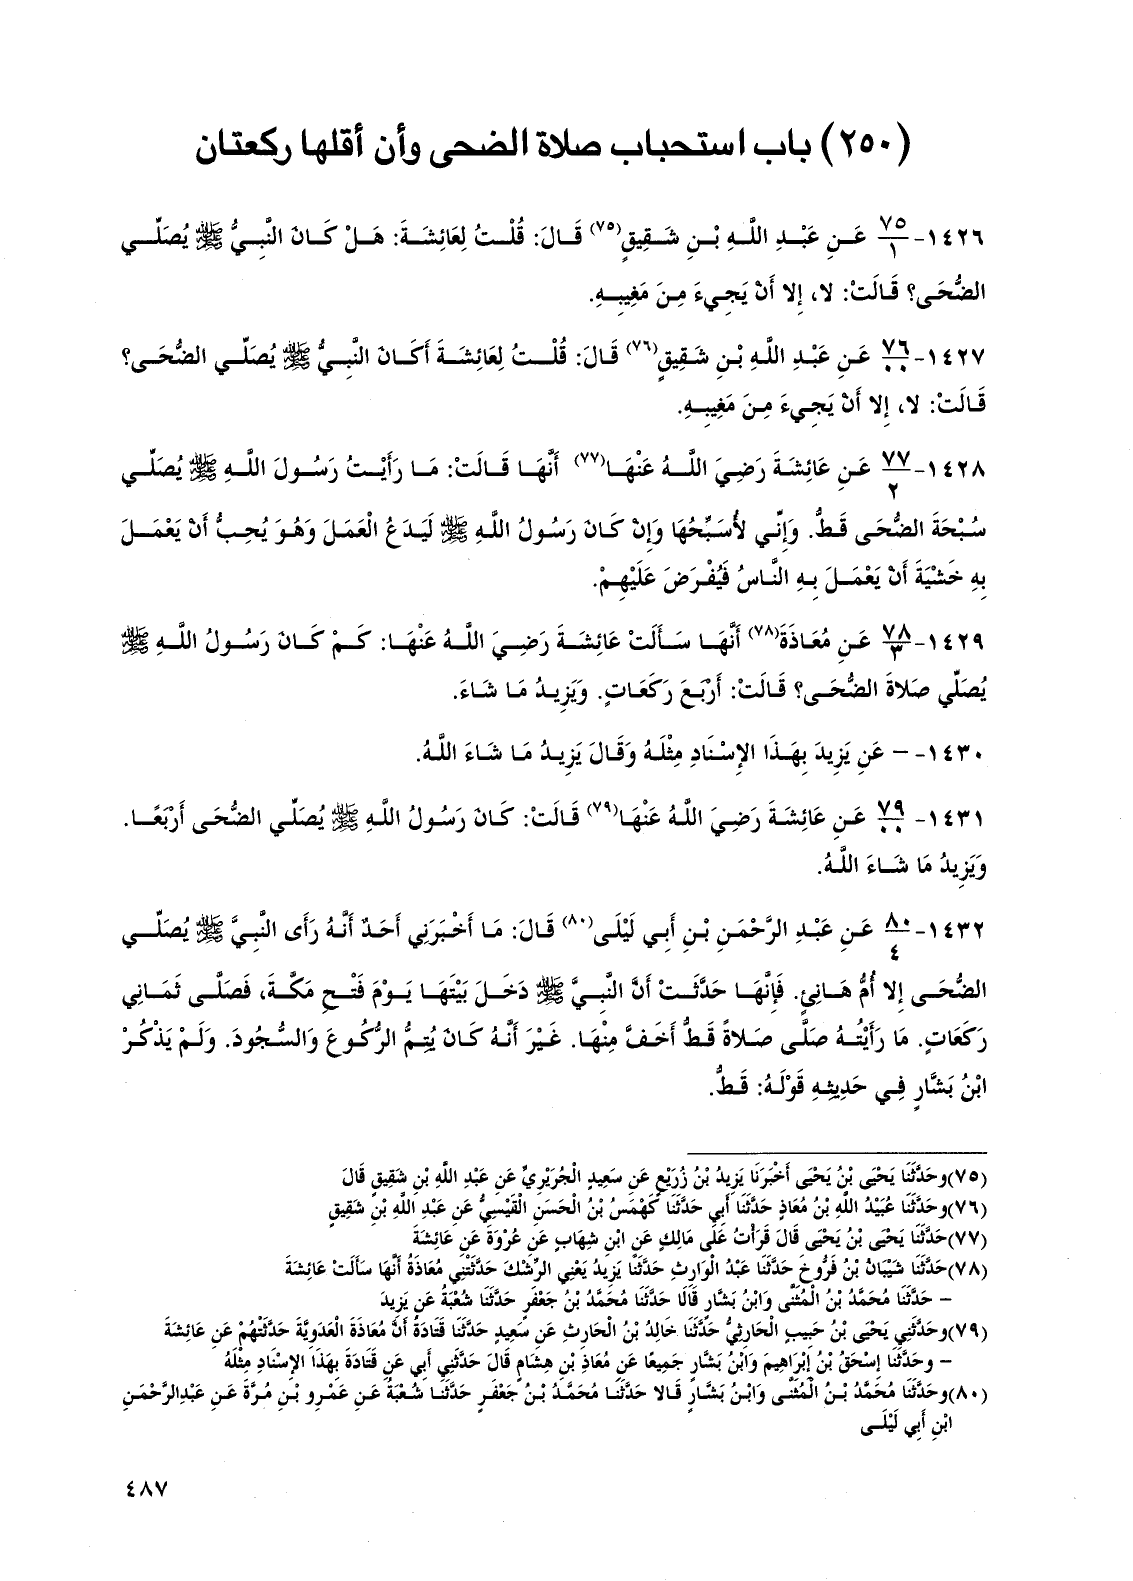 (٢٥٠) باب استحباب صلاة الضحى وأن أقلها ركعتان
١٤٢٦- ٧٥/١ عَنِ عَبْدِ اللَّهِ بْنِ شَقِيقٍ(٧٥) قَالَ: قُلْتُ لِعَائِشَةَ: هَلْ كَانَ النَّبِيُّ ﷺ يُصَلِّي
الضُّحَى؟ قَالَتْ: لا، إِلا أَنْ يَجِيءَ مِنَ مَغِيبِهِ.
١٤٢٧- ٧٦/٠٠ عَنِ عَبْدِ اللَّهِ بْنِ شَقِيقٍ(٧٦) قَالَ: قُلْتُ لِعَائِشَةَ أَكَانَ النَّبِيُّ ﷺ يُصَلِّي الضُّحَى؟
قَالَتْ: لا، إِلا أَنْ يَجِيءَ مِنَ مَغِيبِهِ.
١٤٢٨- ٧٧/٢ عَنِ عَائِشَةَ رَضِيَ اللَّهُ عَنْهَا(٧٧) أَنَّهَا قَالَتْ: مَا رَأَيْتُ رَسُولَ اللَّهِ ﷺ يُصَلِّي
سُبْحَةَ الضُّحَى قَطُّ. وَإِنِّي لأُسَبِّحُهَا وَإِنْ كَانَ رَسُولُ اللَّهِ ﷺ لَيَدَعُ الْعَمَلَ وَهُوَ يُحِبُّ أَنْ يَعْمَلَ
بِهِ خَشْيَةَ أَنْ يَعْمَلَ بِهِ النَّاسُ فَيُفْرَضَ عَلَيْهِمْ.
١٤٢٩- ٧٨/٣ عَنِ مُعَاذَةَ(٧٨) أَنَّهَا سَأَلَتْ عَائِشَةَ رَضِيَ اللَّهُ عَنْهَا: كَمْ كَانَ رَسُولُ اللَّهِ ﷺ
يُصَلِّي صَلاةَ الضُّحَى؟ قَالَتْ: أَرْبَعَ رَكَعَاتٍ. وَيَزِيدُ مَا شَاءَ.
١٤٣٠- – عَن يَزِيدَ بِهَذَا الإِسْنَادِ مِثْلَهُ وَقَالَ يَزِيدُ مَا شَاءَ اللَّهُ.
١٤٣١- ٧٩/٠٠ عَنِ عَائِشَةَ رَضِيَ اللَّهُ عَنْهَا(٧٩) قَالَتْ: كَانَ رَسُولُ اللَّهِ ﷺ يُصَلِّي الضُّحَى أَرْبَعًا.
وَيَزِيدُ مَا شَاءَ اللَّهُ.
١٤٣٢- ٨٠/٤ عَنِ عَبْدِ الرَّحْمَنِ بْنِ أَبِي لَيْلَى(٨٠) قَالَ: مَا أَخْبَرَنِي أَحَدٌ أَنَّهُ رَأَى النَّبِيَّ ﷺ يُصَلِّي
الضُّحَى إِلا أُمُّ هَانِئٍ. فَإِنَّهَا حَدَّثَتْ أَنَّ النَّبِيَّ ﷺ دَخَلَ بَيْتَهَا يَوْمَ فَتْحِ مَكَّةَ، فَصَلَّى ثَمَانِي
رَكَعَاتٍ. مَا رَأَيْتُهُ صَلَّى صَلاةً قَطُّ أَخَفَّ مِنْهَا. غَيْرَ أَنَّهُ كَانَ يُتِمُّ الرُّكُوعَ وَالسُّجُودَ. وَلَمْ يَذْكُرْ
ابْنُ بَشَّارٍ فِي حَدِيثِهِ قَوْلَهُ: قَطُّ.
(٧٥)وحَدَّثَنَا يَحْيَى بْنُ يَحْيَى أَخْبَرَنَا يَزِيدُ بْنُ زُرَيْعٍ عَنِ سَعِيدٍ الْجُرَيْرِيِّ عَنِ عَبْدِ اللَّهِ بْنِ شَقِيقٍ قَالَ
(٧٦)وحَدَّثَنَا عُبَيْدُ اللَّهِ بْنُ مُعَاذٍ حَدَّثَنَا أَبِي حَدَّثَنَا كَهْمَسُ بْنُ الْحَسَنِ الْقَيْسِيُّ عَنِ عَبْدِ اللَّهِ بْنِ شَقِيقٍ
(٧٧)حَدَّثَنَا يَحْيَى بْنُ يَحْيَى قَالَ قَرَأْتُ عَلَى مَالِكٍ عَنِ ابْنِ شِهَابٍ عَنِ عُرْوَةَ عَنِ عَائِشَةَ
(٧٨)حَدَّثَنَا شَيْبَانُ بْنُ فَرُّوخَ حَدَّثَنَا عَبْدُ الْوَارِثِ حَدَّثَنَا يَزِيدُ يَعْنِي الرِّشْكَ حَدَّثَتْنِي مُعَاذَةُ أَنَّهَا سَأَلَتْ عَائِشَةَ
– حَدَّثَنَا مُحَمَّدُ بْنُ الْمُثَنَّى وَابْنُ بَشَّارٍ قَالَا حَدَّثَنَا مُحَمَّدُ بْنُ جَعْفَرٍ حَدَّثَنَا شُعْبَةُ عَن يَزِيدَ
(٧٩)وحَدَّثَنِي يَحْيَى بْنُ حَبِيبٍ الْحَارِثِيُّ حَدَّثَنَا خَالِدُ بْنُ الْحَارِثِ عَن سَعِيدٍ حَدَّثَنَا قَتَادَةُ أَنَّ مُعَاذَةَ الْعَدَوِيَّةَ حَدَّثَتْهُمْ عَنِ عَائِشَةَ
– وحَدَّثَنَا إِسْحَقُ بْنُ إِبْرَاهِيمَ وَابْنُ بَشَّارٍ جَمِيعًا عَنِ مُعَاذِ بْنِ هِشَامٍ قَالَ حَدَّثَنِي أَبِي عَنِ قَتَادَةَ بِهَذَا الإِسْنَادِ مِثْلَهُ
(٨٠)وحَدَّثَنَا مُحَمَّدُ بْنُ الْمُثَنَّى وَابْنُ بَشَّارٍ قَالا حَدَّثَنَا مُحَمَّدُ بْنُ جَعْفَرٍ حَدَّثَنَا شُعْبَةُ عَنِ عَمْرِو بْنِ مُرَّةَ عَنِ عَبْدِالرَّحْمَنِ
ابْنِ أَبِي لَيْلَى
٤٨٧